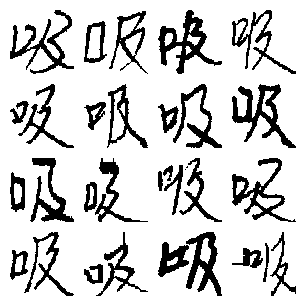 吸吸吸吸
吸吸吸吸
吸吸吸吸
吸吸吸吸